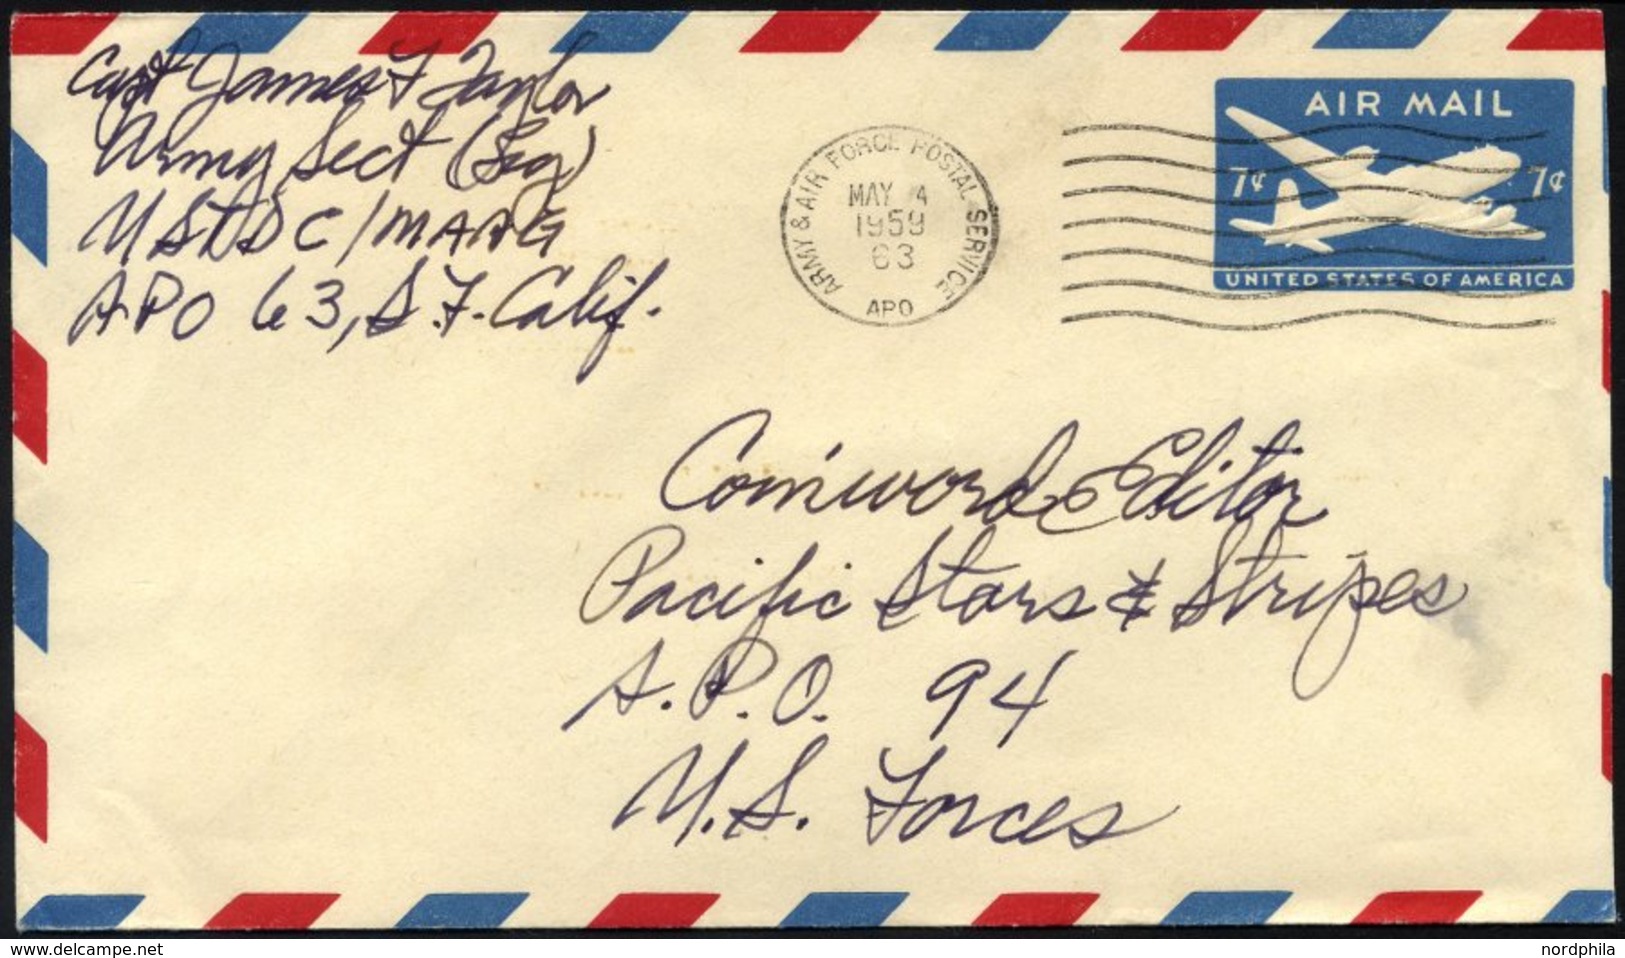 Capt James F Taylor
Army Sect (Sig)
APO 63, S.F. Calif.
ARMY & AIR FORCE POSTAL SERVICE
MAY 4
1959
63
APO
AIR MAIL
7¢ 7¢
UNITED STATES OF AMERICA
Coinword Editor
Pacific Stars & Stripes
A.P.O. 94
U.S. Forces
www.delcampe.net
nordphila